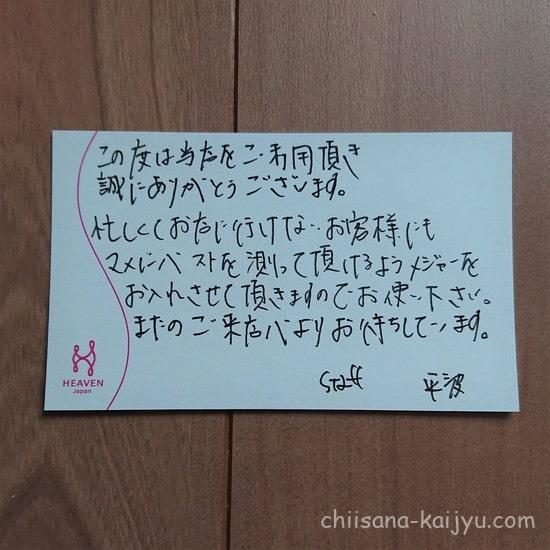 この度は当店をご利用頂き
誠にありがとうございます。
忙しくてお店に行けないお客様にも
マメにバストを測って頂けるようメジャーを
お入れさせて頂きますのでお使い下さい。
またのご来店心よりお待ちしています。
Staff 平波
HEAVEN
Japan
chiisana-kaijyu.com